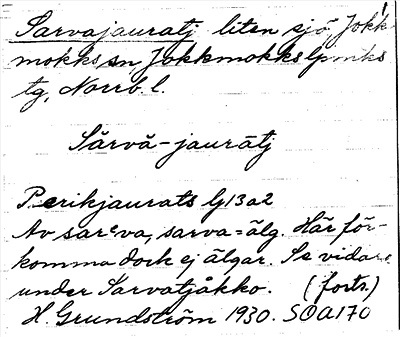 Sarvajauratj liten sjö, Jokk-
mokks sn Jokkmokks lpmks
tg, Norrb. l.
Sårvå-jauratj
Perikjaurats lg13a2
Av sarᵉva, sarva=älg. Här för-
komma dock ej älgar. Se vidare
under Sarvatjåkko. (forts.)
H. Grundström 1930. SOA170